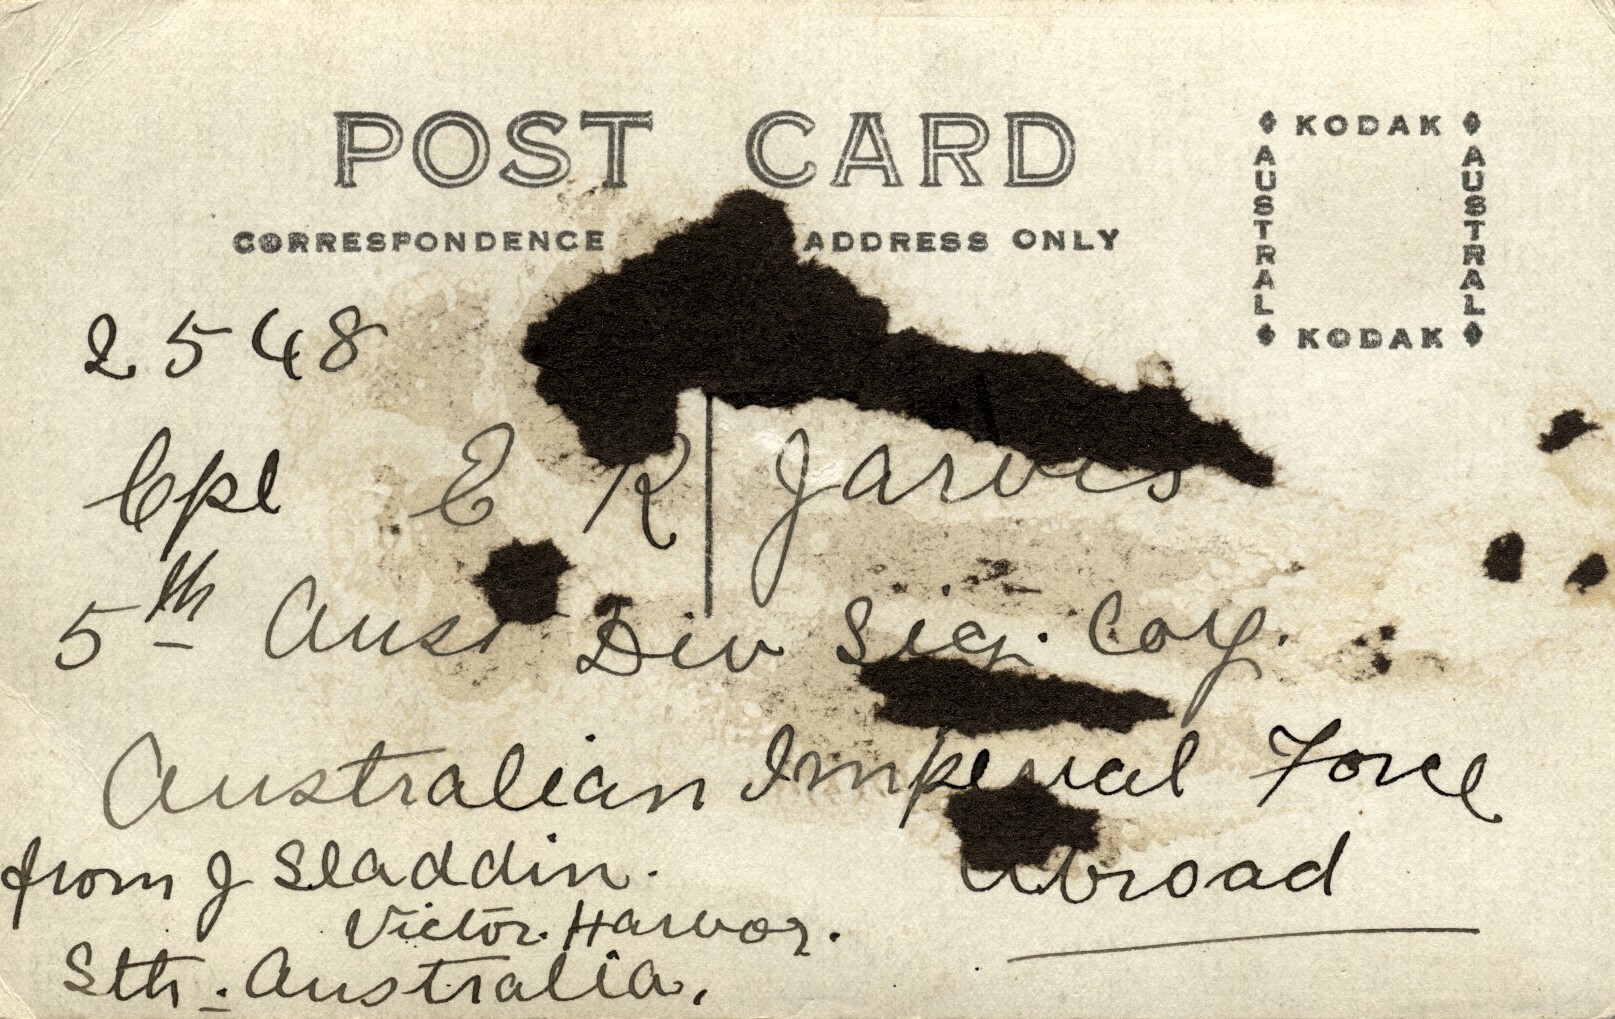 POST CARD
CORRESPONDENCE ADDRESS ONLY
KODAK
AUSTRAL
AUSTRAL
KODAK
2548
Cpl E R Jarvis
5th Aust Div Sig. Coy.
Australian Imperial Force
Abroad
from J Sladdin.
Victor. Harvor.
Sth. Australia.